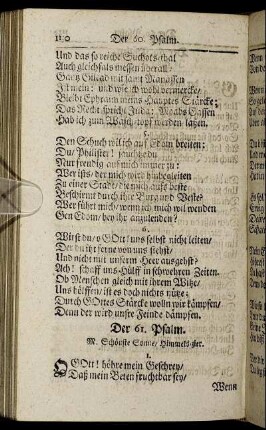 110 Der 60. Psalm.
Und das so reiche Suchots-thal
Auch gleichfals messen überall.
Gantz Gilead mit samt Manassen
Ist mein: und wie ich wol vermercke/
Bleibt Ephraim meins Hauptes Stärcke;
Das Recht spricht Juda: Moabs Gassen
Hab ich zum Wasch-topf werden lassen.
5.
Den Schuch wil ich auf Edom breiten:
Du/ Philister! jauchze du
Nur freudig auf mich immer zu:
Wer ists/ der mich wird hinbegleiten
Zu einer Stadt/ die mich aufs beste
Beschirmt durch ihre Burg und Veste?
Wer führt mich/ wenn ich mich wil wenden
Gen Edom/ hey ihr anzulenden?
6.
Wirst du/ o GOtt! uns selbst nicht leiten/
Der du itzt ferne von uns stehst/
Und nicht mit unserm Heer ausgehst?
Ach! schaff uns Hülff in schwehren Zeiten.
Ob Menschen gleich mit ihrem Witze/
Uns hälffen/ ist es doch nichts nütze:
Durch GOttes Stärcke wolln wir kämpfen/
Denn der wird unsre Feinde dämpfen.
Der 61. Psalm.
M. Schönste Sonne/ Himmels-zier.
1.
O GOtt! höhre mein Geschrey/
Daß mein Beten fruchtbar sey/
Wenn